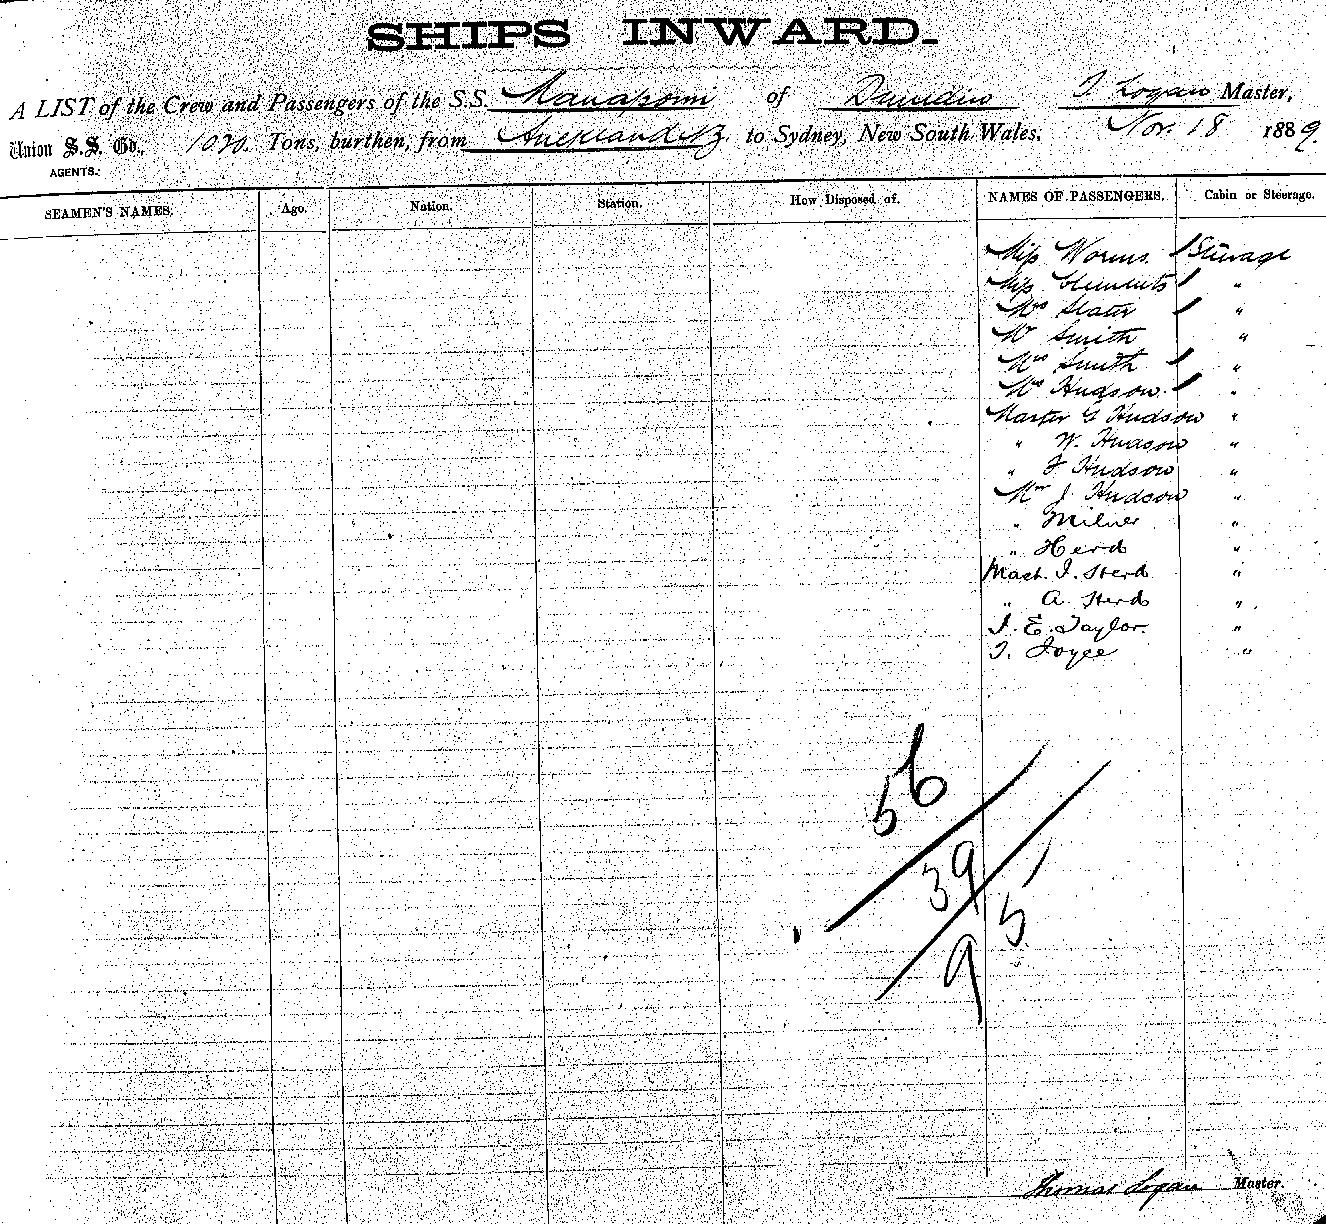 SHIPS INWARD.
A LIST of the Crew and Passengers of the S.S. Manapouri of Dunedin T Logan Master,
Union S.S. Co., 1020 Tons, burthen, from Auckland NZ to Sydney, New South Wales, Nov. 18 1889.
AGENTS:
SEAMEN'S NAMES. Age. Nation. Station. How Disposed of. NAMES OF PASSENGERS. Cabin or Steerage.
Miss Worms Steerage
Miss Clements "
Mrs Slater "
Mr Smith "
Mrs Smith "
Mrs Hudson "
Master G Hudson "
" W. Hudson "
" F Hudson "
Mr J Hudson "
" Milner "
" Herd "
Mast. I. Herd "
" A. Herd "
J. E. Taylor. "
T. Joyce "
56
39
5
9
Thomas Logan Master.